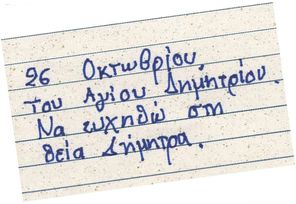 26 Οκτωβρίου,
του Αγίου Δημητρίου.
Να ευχηθώ στη
θεία Δήμητρα.